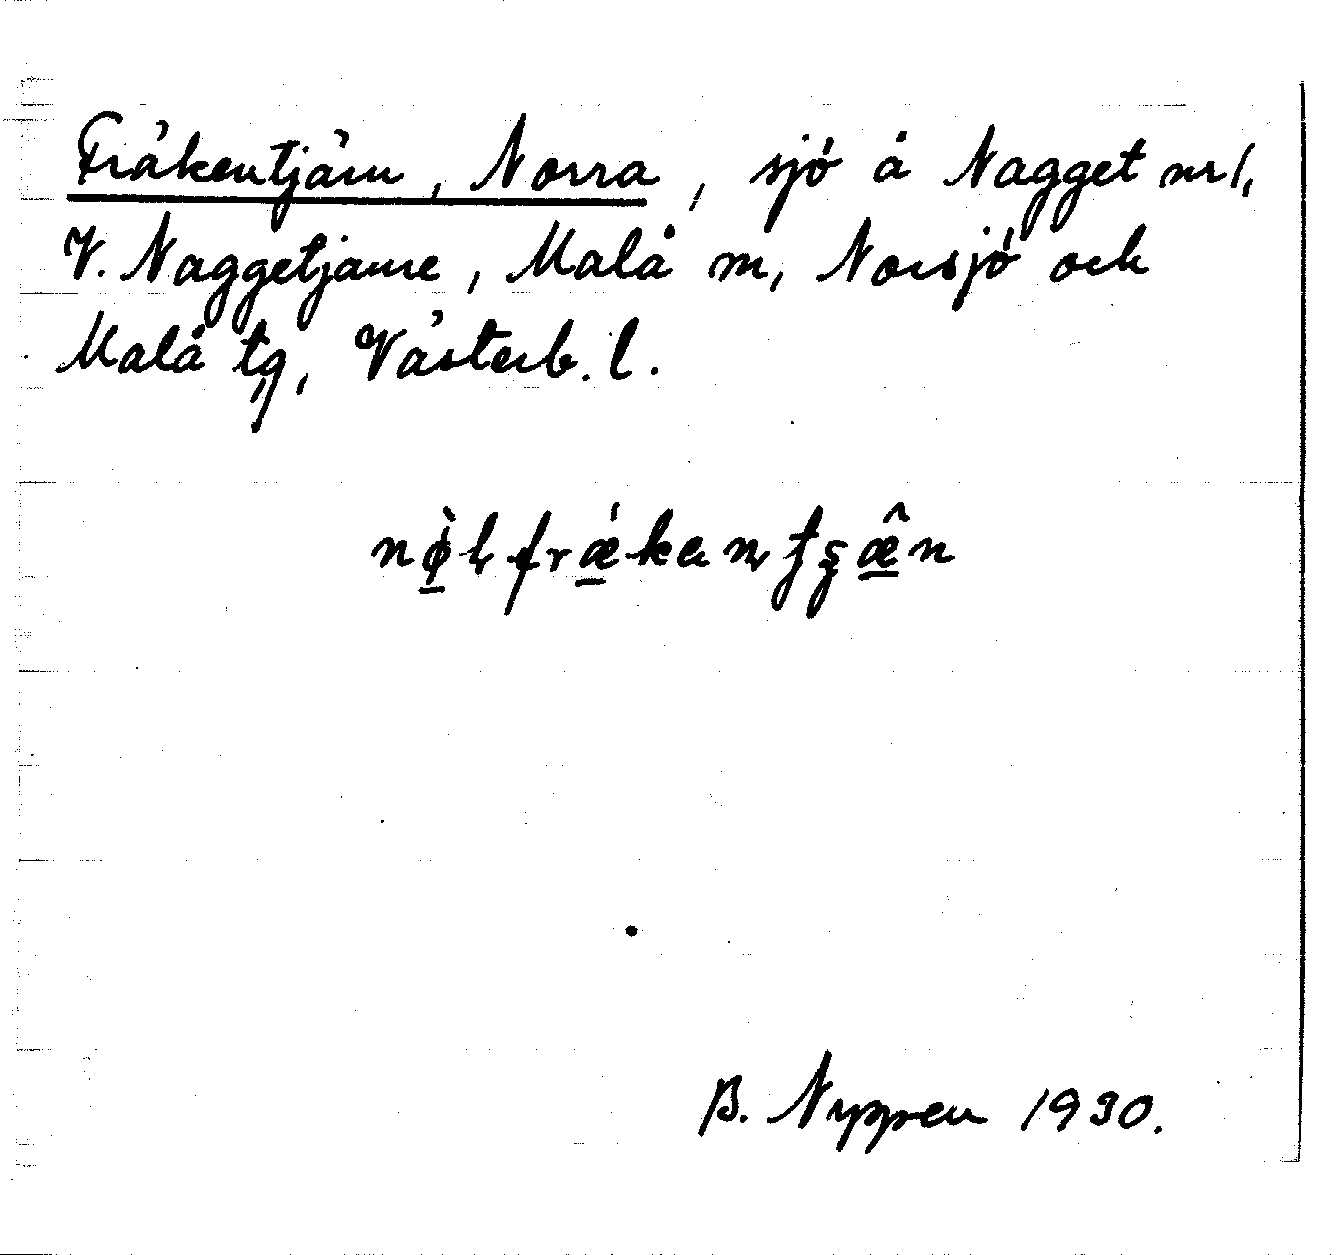 Fräkentjärn, Norra, sjö å Nagget nr 1,
V. Naggetjaure, Malå m, Norsjö och
Malå tg, Västerb. l.
B. Nyppen 1930.